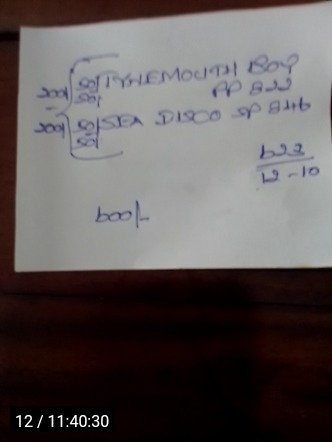 200 { 50/50 TYNEMOUTH BOY
PP 822
200 { 50/50 SEA DISCO SP 846
b23
12-10
600/-
12 / 11:40:30